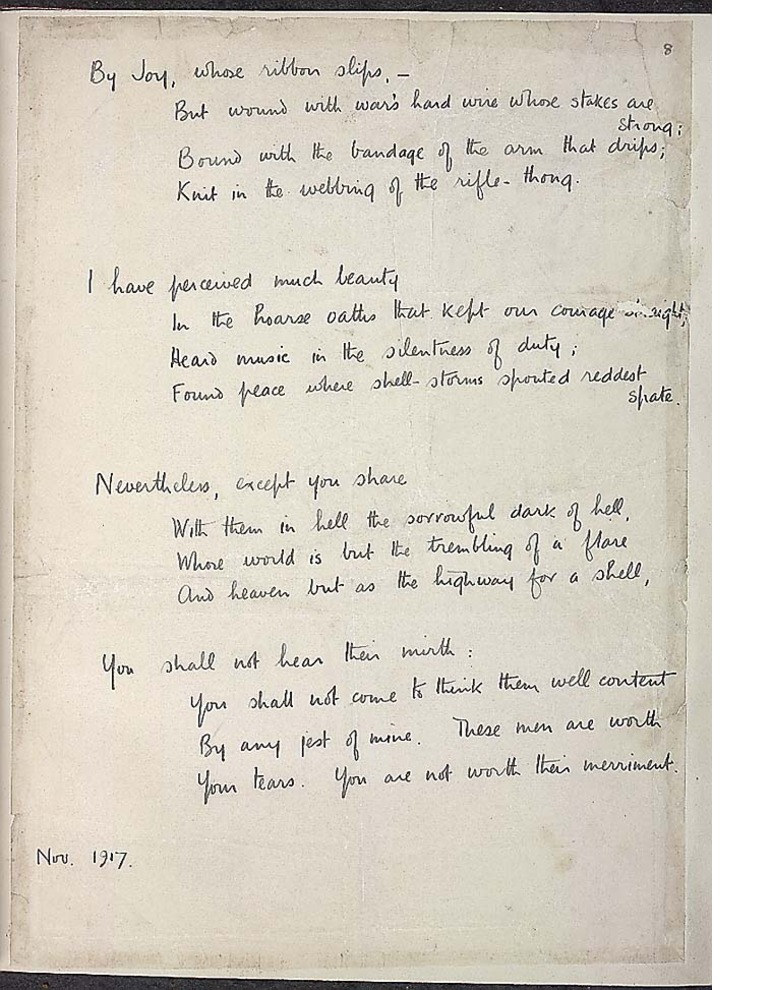 8
By Joy, whose ribbon slips, –
But wound with war's hard wire whose stakes are
strong;
Bound with the bandage of the arm that drips;
Knit in the webbing of the rifle-thong.
I have perceived much beauty
In the hoarse oaths that kept our courage straight;
Heard music in the silentness of duty;
Found peace where shell-storms spouted reddest
spate.
Nevertheless, except you share
With them in hell the sorrowful dark of hell,
Whose world is but the trembling of a flare
And heaven but as the highway for a shell,
You shall not hear their mirth:
You shall not come to think them well content
By any jest of mine. These men are worth
Your tears. You are not worth their merriment.
Nov. 1917.